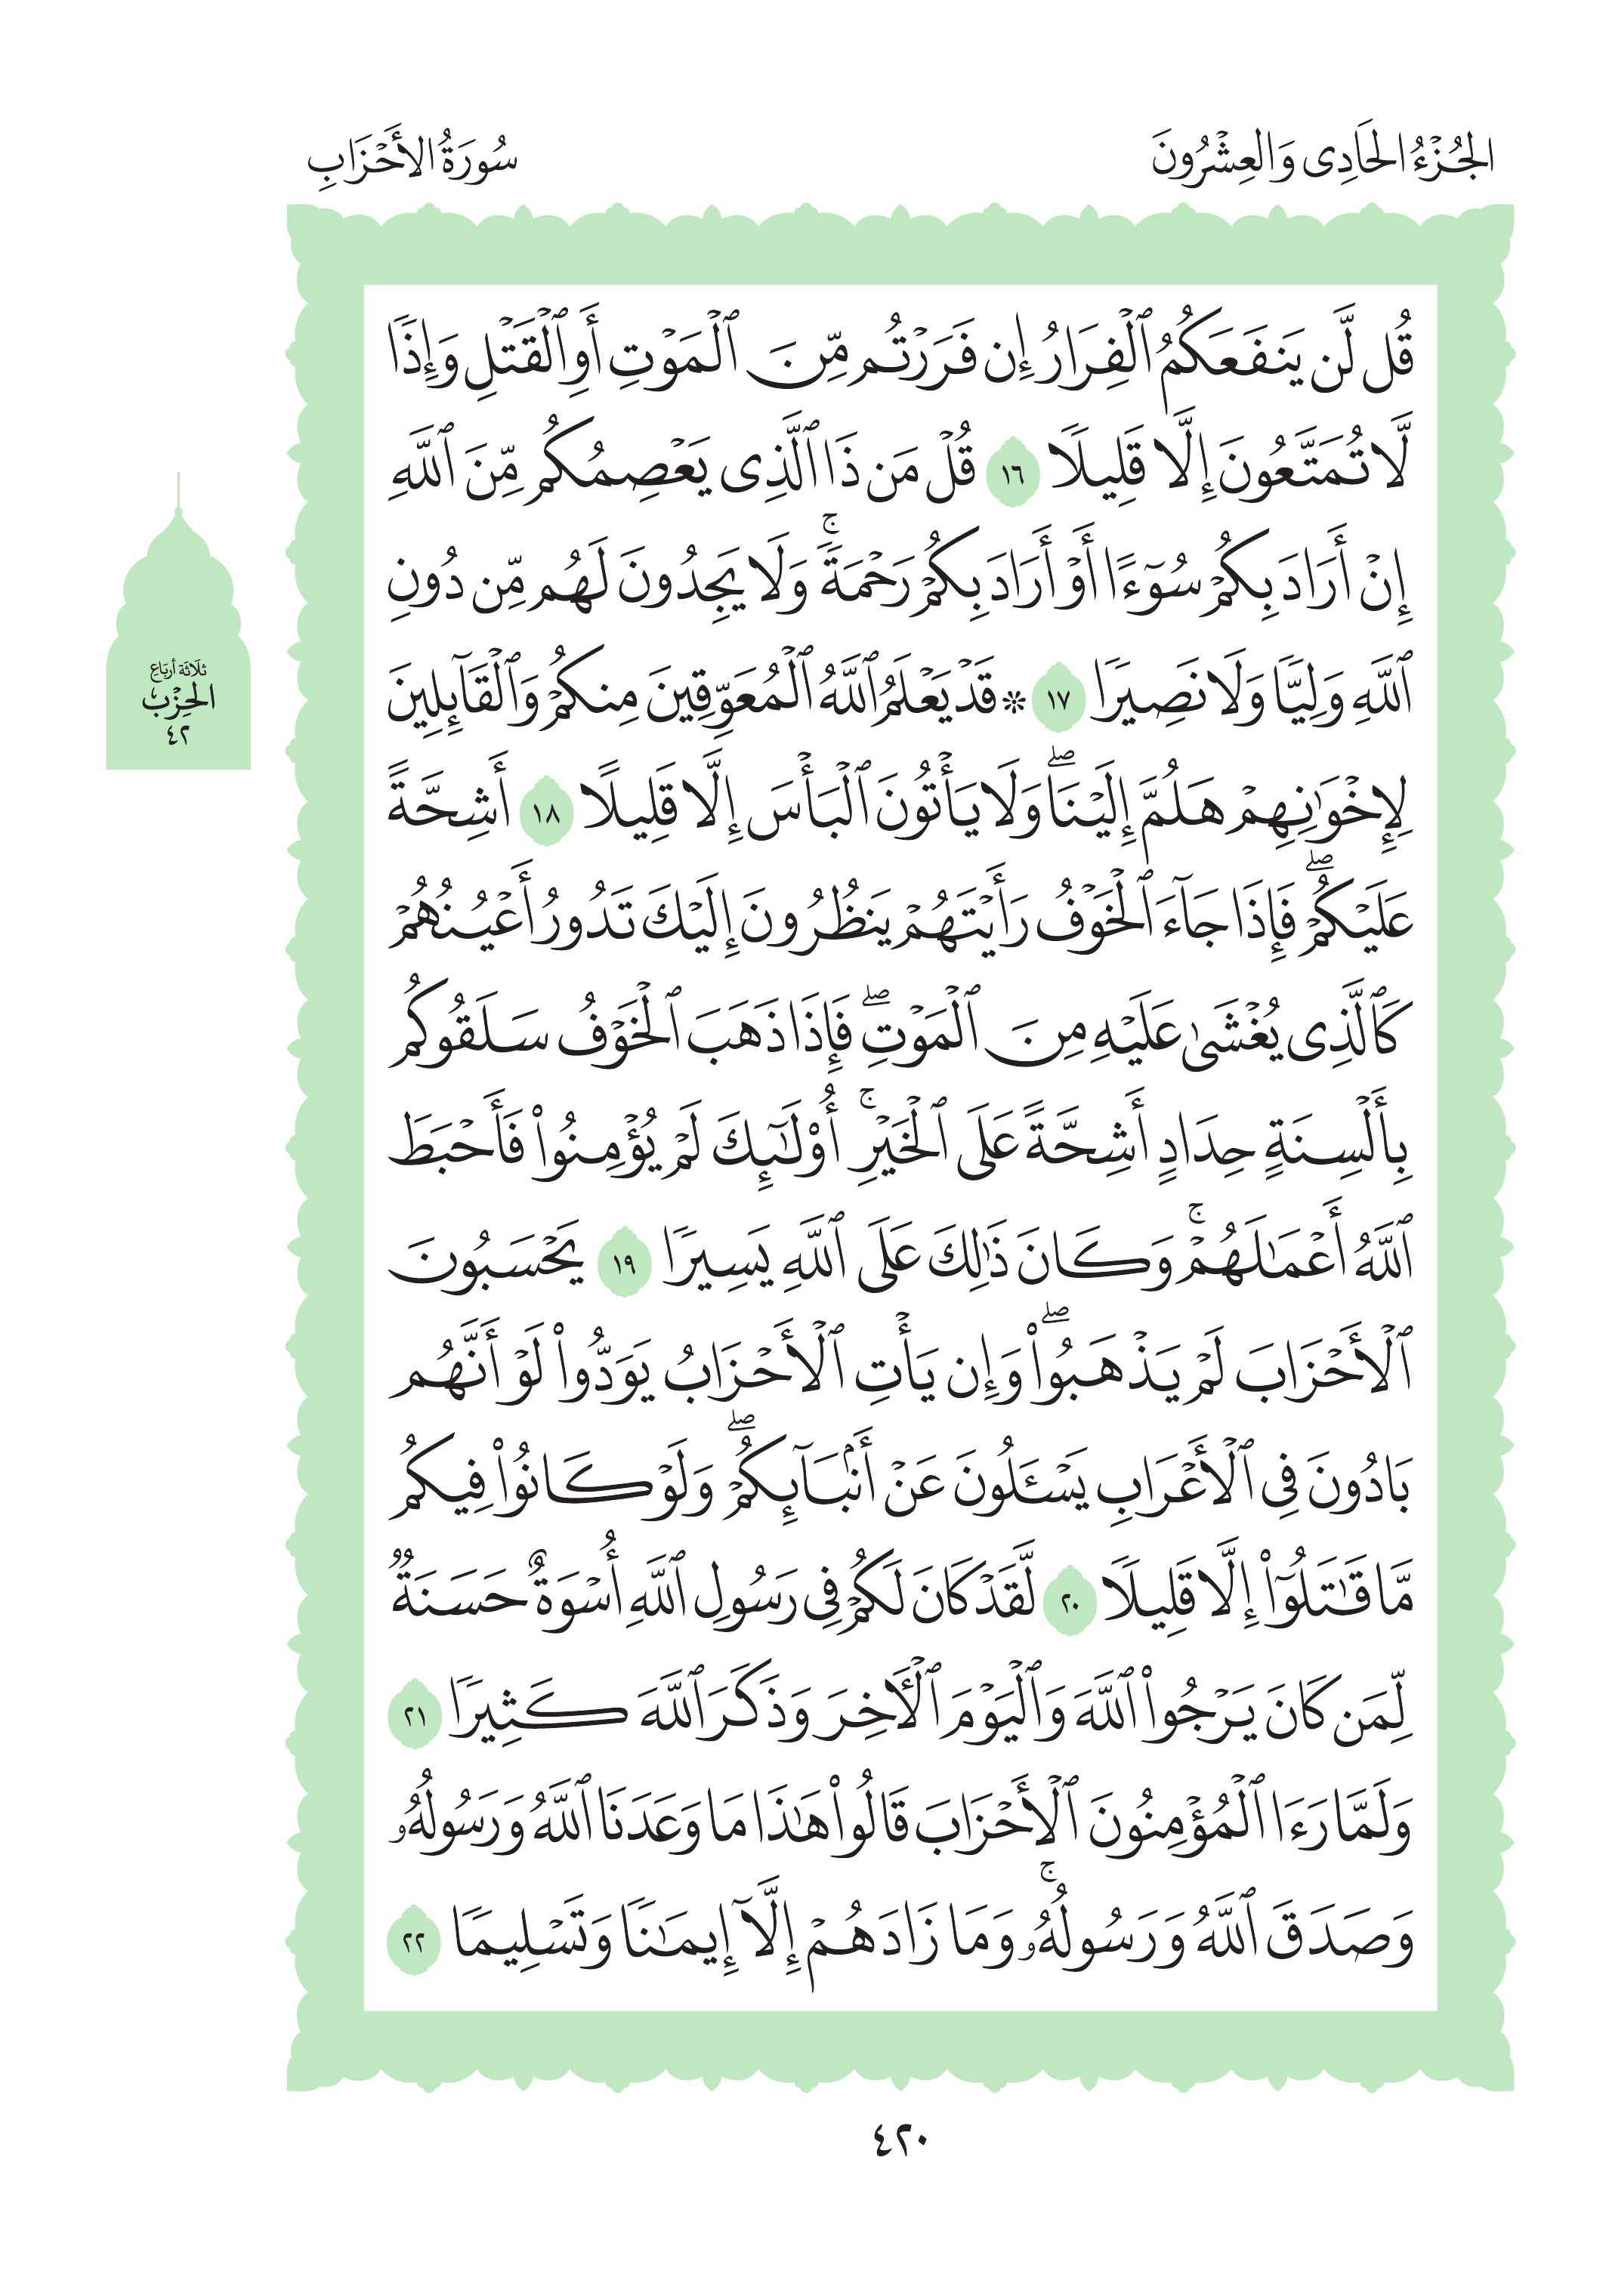 الجُزْءُ الحَادِى وَالعِشْرُونَ
سُورَةُ الأَحْزَابِ
قُل لَّن يَنفَعَكُمُ ٱلْفِرَارُ إِن فَرَرْتُم مِّنَ ٱلْمَوْتِ أَوِ ٱلْقَتْلِ وَإِذًا
لَّا تُمَتَّعُونَ إِلَّا قَلِيلًا ١٦ قُلْ مَن ذَا ٱلَّذِى يَعْصِمُكُم مِّنَ ٱللَّهِ
إِنْ أَرَادَ بِكُمْ سُوٓءًا أَوْ أَرَادَ بِكُمْ رَحْمَةً ۚ وَلَا يَجِدُونَ لَهُم مِّن دُونِ
ٱللَّهِ وَلِيًّا وَلَا نَصِيرًا ١٧ * قَدْ يَعْلَمُ ٱللَّهُ ٱلْمُعَوِّقِينَ مِنكُمْ وَٱلْقَآئِلِينَ
لِإِخْوَٰنِهِمْ هَلُمَّ إِلَيْنَا ۖ وَلَا يَأْتُونَ ٱلْبَأْسَ إِلَّا قَلِيلًا ١٨ أَشِحَّةً
عَلَيْكُمْ ۖ فَإِذَا جَآءَ ٱلْخَوْفُ رَأَيْتَهُمْ يَنظُرُونَ إِلَيْكَ تَدُورُ أَعْيُنُهُمْ
كَٱلَّذِى يُغْشَىٰ عَلَيْهِ مِنَ ٱلْمَوْتِ ۖ فَإِذَا ذَهَبَ ٱلْخَوْفُ سَلَقُوكُم
بِأَلْسِنَةٍ حِدَادٍ أَشِحَّةً عَلَى ٱلْخَيْرِ ۚ أُو۟لَـٰٓئِكَ لَمْ يُؤْمِنُوا۟ فَأَحْبَطَ
ٱللَّهُ أَعْمَـٰلَهُمْ ۚ وَكَانَ ذَٰلِكَ عَلَى ٱللَّهِ يَسِيرًا ١٩ يَحْسَبُونَ
ٱلْأَحْزَابَ لَمْ يَذْهَبُوا۟ ۖ وَإِن يَأْتِ ٱلْأَحْزَابُ يَوَدُّوا۟ لَوْ أَنَّهُم
بَادُونَ فِى ٱلْأَعْرَابِ يَسْـَٔلُونَ عَنْ أَنۢبَآئِكُمْ ۖ وَلَوْ كَانُوا۟ فِيكُم
مَّا قَـٰتَلُوٓا۟ إِلَّا قَلِيلًا ٢٠ لَّقَدْ كَانَ لَكُمْ فِى رَسُولِ ٱللَّهِ أُسْوَةٌ حَسَنَةٌ
لِّمَن كَانَ يَرْجُوا۟ ٱللَّهَ وَٱلْيَوْمَ ٱلْـَٔاخِرَ وَذَكَرَ ٱللَّهَ كَثِيرًا ٢١
وَلَمَّا رَءَا ٱلْمُؤْمِنُونَ ٱلْأَحْزَابَ قَالُوا۟ هَـٰذَا مَا وَعَدَنَا ٱللَّهُ وَرَسُولُهُۥ
وَصَدَقَ ٱللَّهُ وَرَسُولُهُۥ ۚ وَمَا زَادَهُمْ إِلَّآ إِيمَـٰنًا وَتَسْلِيمًا ٢٢
ثلَاثَة أربَاع
الحِزْب
٤٢
٤٢٠